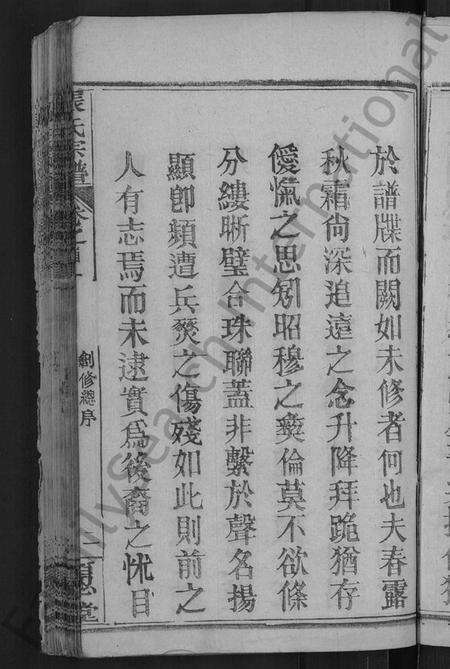 於譜牒而闕如未修者何也夫春露
秋霜尙深追遠之念升降拜跪猶存
僾愾之思矧昭穆之彝倫莫不欲條
分縷晰璧合珠聯蓋非繫於聲名揚
顯卽頻遭兵燹之傷殘如此則前之
人有志焉而未逮實爲後裔之怵目
張氏宗譜
卷之首
創修總序
堂
FamilySearch International